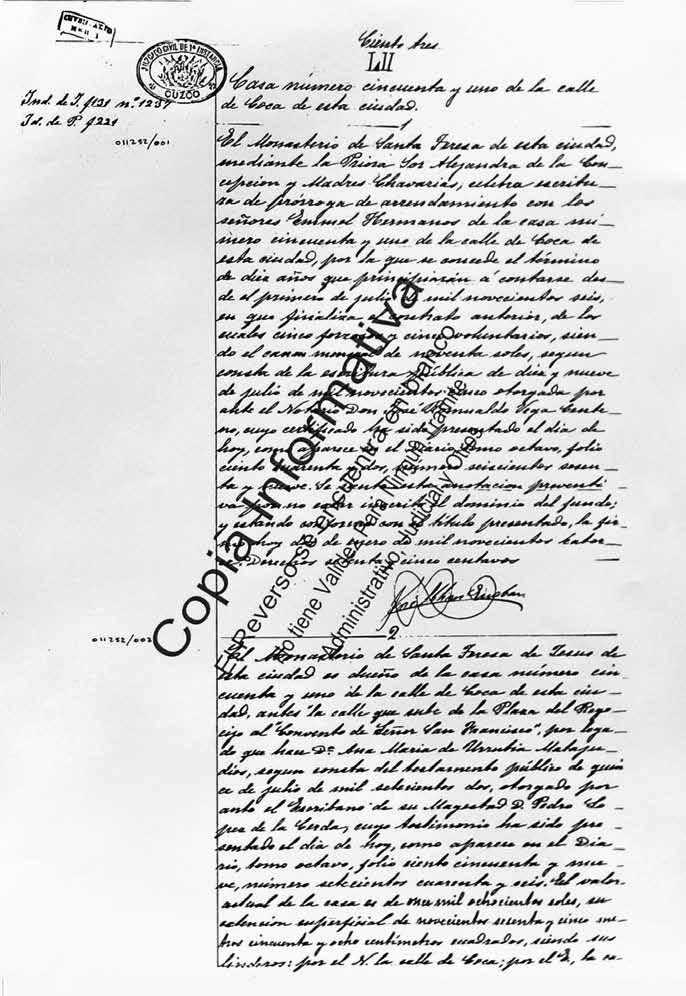 Ciento tres
LII
JUZGADO CIVIL DE 1ª INSTANCIA
CUZCO
Ind. de J. f131 nº 1237
Id. de P. f221
Casa número cincuenta y uno de la calle
de Coca de esta ciudad.
011252/001
1
El Monasterio de Santa Teresa de esta ciudad,
mediante la Priora Sor Alejandra de la Con-
cepcion y Madres Chavarias, celebra escritu-
ra de prórroga de arrendamiento con los
señores Emmel Hermanos de la casa nú-
mero cincuenta y uno de la calle de Coca de
esta ciudad, por la que se concede el término
de diez años que principiarán á contarse des-
de el primero de julio de mil novecientos seis,
en que finaliza el contrato anterior, de los
cuales cinco forzosos y cinco voluntarios, sien-
do el canon mensual de noventa soles, segun
consta de la escritura pública de diez y nueve
de julio de mil novecientos cinco otorgada por
ante el Notario Don José Romualdo Vega Cente-
no, cuyo certificado ha sido presentado el dia de
hoy, como aparece en el Diario, tomo octavo, folio
ciento cuarenta y dos, número seiscientos sesen-
ta y nueve. Se sienta esta anotacion preventi-
va por no estar inscrito el dominio del fundo;
y estando conforme con el título presentado, la fir-
mo hoy de enero de mil novecientos cator-
Derechos y cinco centavos
011252/002
2
El Monasterio de Santa Teresa de Jesus de
esta ciudad es dueño de la casa número cin-
cuenta y uno de la calle de Coca de esta ciu-
dad, antes "la calle que sube de la Plaza del Rego-
cijo al Convento de Señor San Francisco", por lega-
do que hace Dª Ana Maria de Urrutia Mataju-
dios, segun consta del testamento público de quin
ce de julio de mil setecientos dos, otorgado por
ante el Escribano de su Magestad D. Pedro Lo-
pez de la Cerda, cuyo testimonio ha sido pre-
sentado el dia de hoy, como aparece en el Dia-
rio, tomo octavo, folio siento cincuenta y nue-
ve, número setecientos cuarenta y seis. El valor
actual de la casa es de once mil ochocientos soles, su
estencion superficial de novecientos sesenta y cinco me-
tros cincuenta y ocho centímetros cuadrados, siendo sus
linderos: por el N. la calle de Coca; por el E, la ca-
Copia Informativa
El Reverso se encuentra en blanco
No tiene Validez Para Ningún Trámite
Administrativo, Judicial y Otros